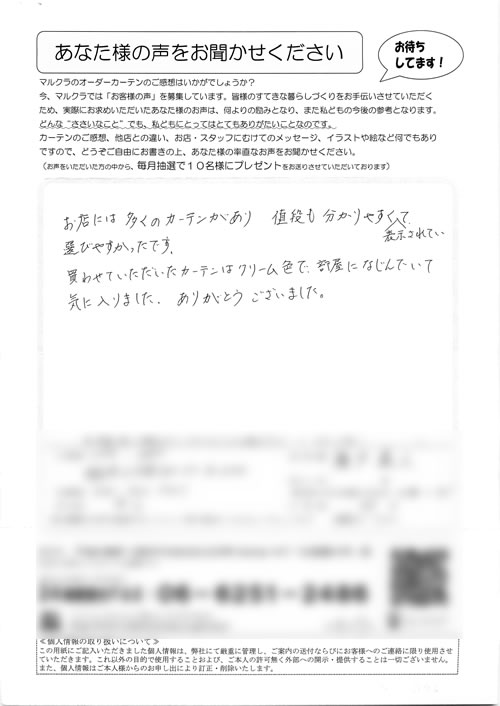 あなた様の声をお聞かせください
お待ち
してます!
マルクラのオーダーカーテンのご感想はいかがでしょうか?
今、マルクラでは「お客様の声」を募集しています。皆様のすてきな暮らしづくりをお手伝いさせていただく
ため、実際にお求めいただいたあなた様のお声は、何よりの励みとなり、また私どもの今後の参考となります。
どんな“ささいなこと”でも、私どもにとってはとてもありがたいことなのです。
カーテンのご感想、他店との違い、お店・スタッフにむけてのメッセージ、イラストや絵など何でもあり
ですので、どうぞご自由にお書きの上、あなた様の率直なお声をお聞かせください。
(お声をいただいた方の中から、毎月抽選で10名様にプレゼントをお送りさせていただいております)
お店には多くのカーテンがあり 値段も分かりやすくて
表示されてい
選びやすかったです。
買わせていただいたカーテンはクリーム色で、部屋になじんでいて
気に入りました。ありがとうございました。
06-6251-2486
≪個人情報の取り扱いについて≫
この用紙にご記入いただきました個人情報は、弊社にて厳重に管理し、ご案内の送付ならびにお客様へのご連絡に限り使用させ
ていただきます。これ以外の目的で使用することおよび、ご本人の許可無く外部への開示・提供することは一切ございません。
また、個人情報はご本人様からのお申し出により訂正・削除いたします。